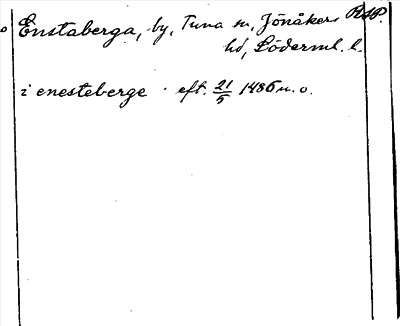 Enstaberga, by, Tuna sn, Jönåkers RAP.
hd, Söderml. l.
i enesteberge · eft. 21/5 1486 u. o.